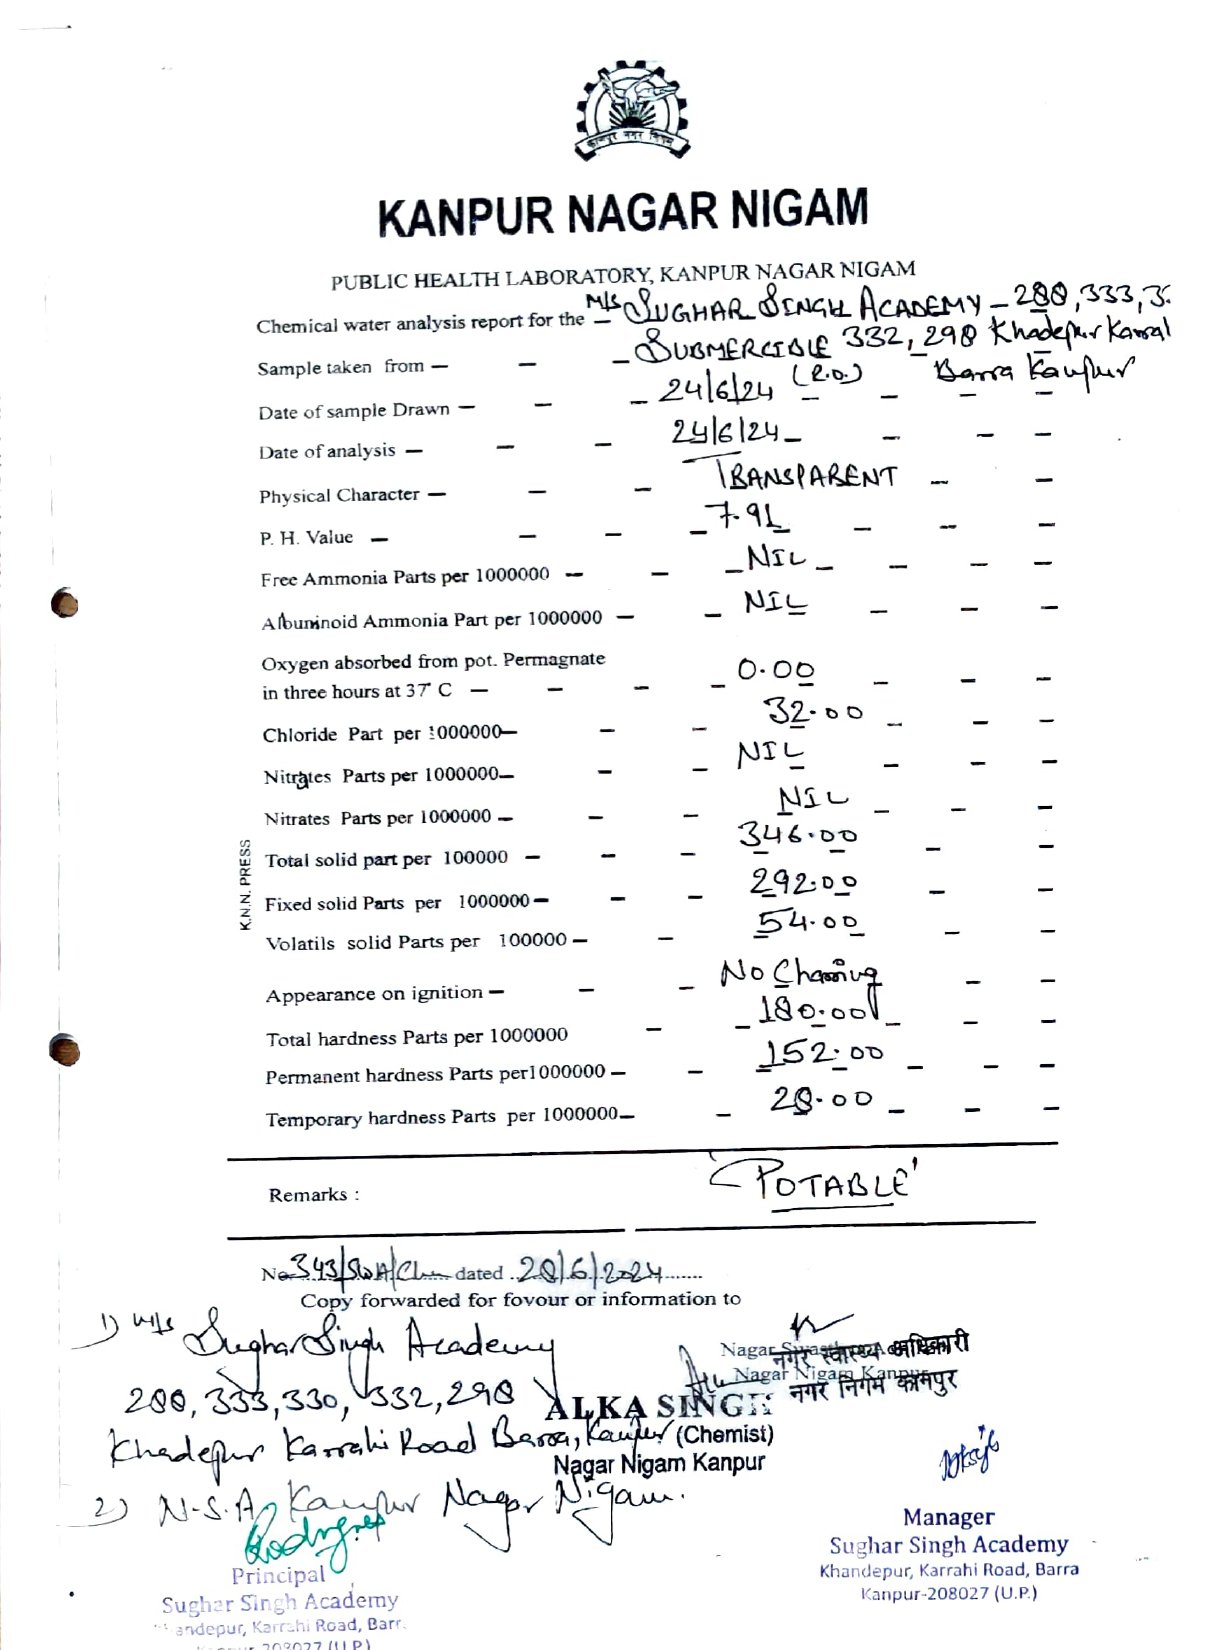 कानपुर नगर निगम
KANPUR NAGAR NIGAM
PUBLIC HEALTH LABORATORY, KANPUR NAGAR NIGAM
Chemical water analysis report for the M/s SUGHAR SINGH ACADEMY – 288, 333, 3
Sample taken from – – – SUBMERCIBLE 332, 298 Khadepur Karral
(R.O.) Barra Kanpur
Date of sample Drawn – – – 24/6/24 – – –
Date of analysis – – – 24/6/24 – – – –
Physical Character – – – TRANSPARENT – –
P. H. Value – – – – 7.91 – – –
Free Ammonia Parts per 1000000 – – – NIL – – – –
Albuminoid Ammonia Part per 1000000 – – NIL – – –
Oxygen absorbed from pot. Permagnate
in three hours at 37° C – – – – 0.00 – – –
Chloride Part per 1000000– – – 32.00 – – –
Nitrates Parts per 1000000– – – NIL – – –
Nitrates Parts per 1000000 – – – NIL – – –
Total solid part per 100000 – – – 346.00 – –
Fixed solid Parts per 1000000 – – – 292.00 – –
Volatils solid Parts per 100000 – – 54.00 – –
K.N.N. PRESS
Appearance on ignition – – – No Charring – –
Total hardness Parts per 1000000 – – 180.00 – – –
Permanent hardness Parts per1000000 – – 152.00 – – –
Temporary hardness Parts per 1000000– – 28.00 – – –
Remarks : 'POTABLE'
No 343/SWA/Chem dated 28/6/2024
Copy forwarded for fovour or information to
1) M/s Sughar Singh Academy
288, 333, 330, 332, 298
Khadepur Karrahi Road Barra, Kanpur
2) N.S.A, Kanpur Nagar Nigam.
नगर स्वास्थ्य अधिकारी
Nagar Nigam Kanpur
नगर निगम कानपुर
ALKA SINGH
(Chemist)
Nagar Nigam Kanpur
Manager
Sughar Singh Academy
Khandepur, Karrahi Road, Barra
Kanpur-208027 (U.P.)
Principal
Sughar Singh Academy
andepur, Karrahi Road, Barr
208027 (U.P)